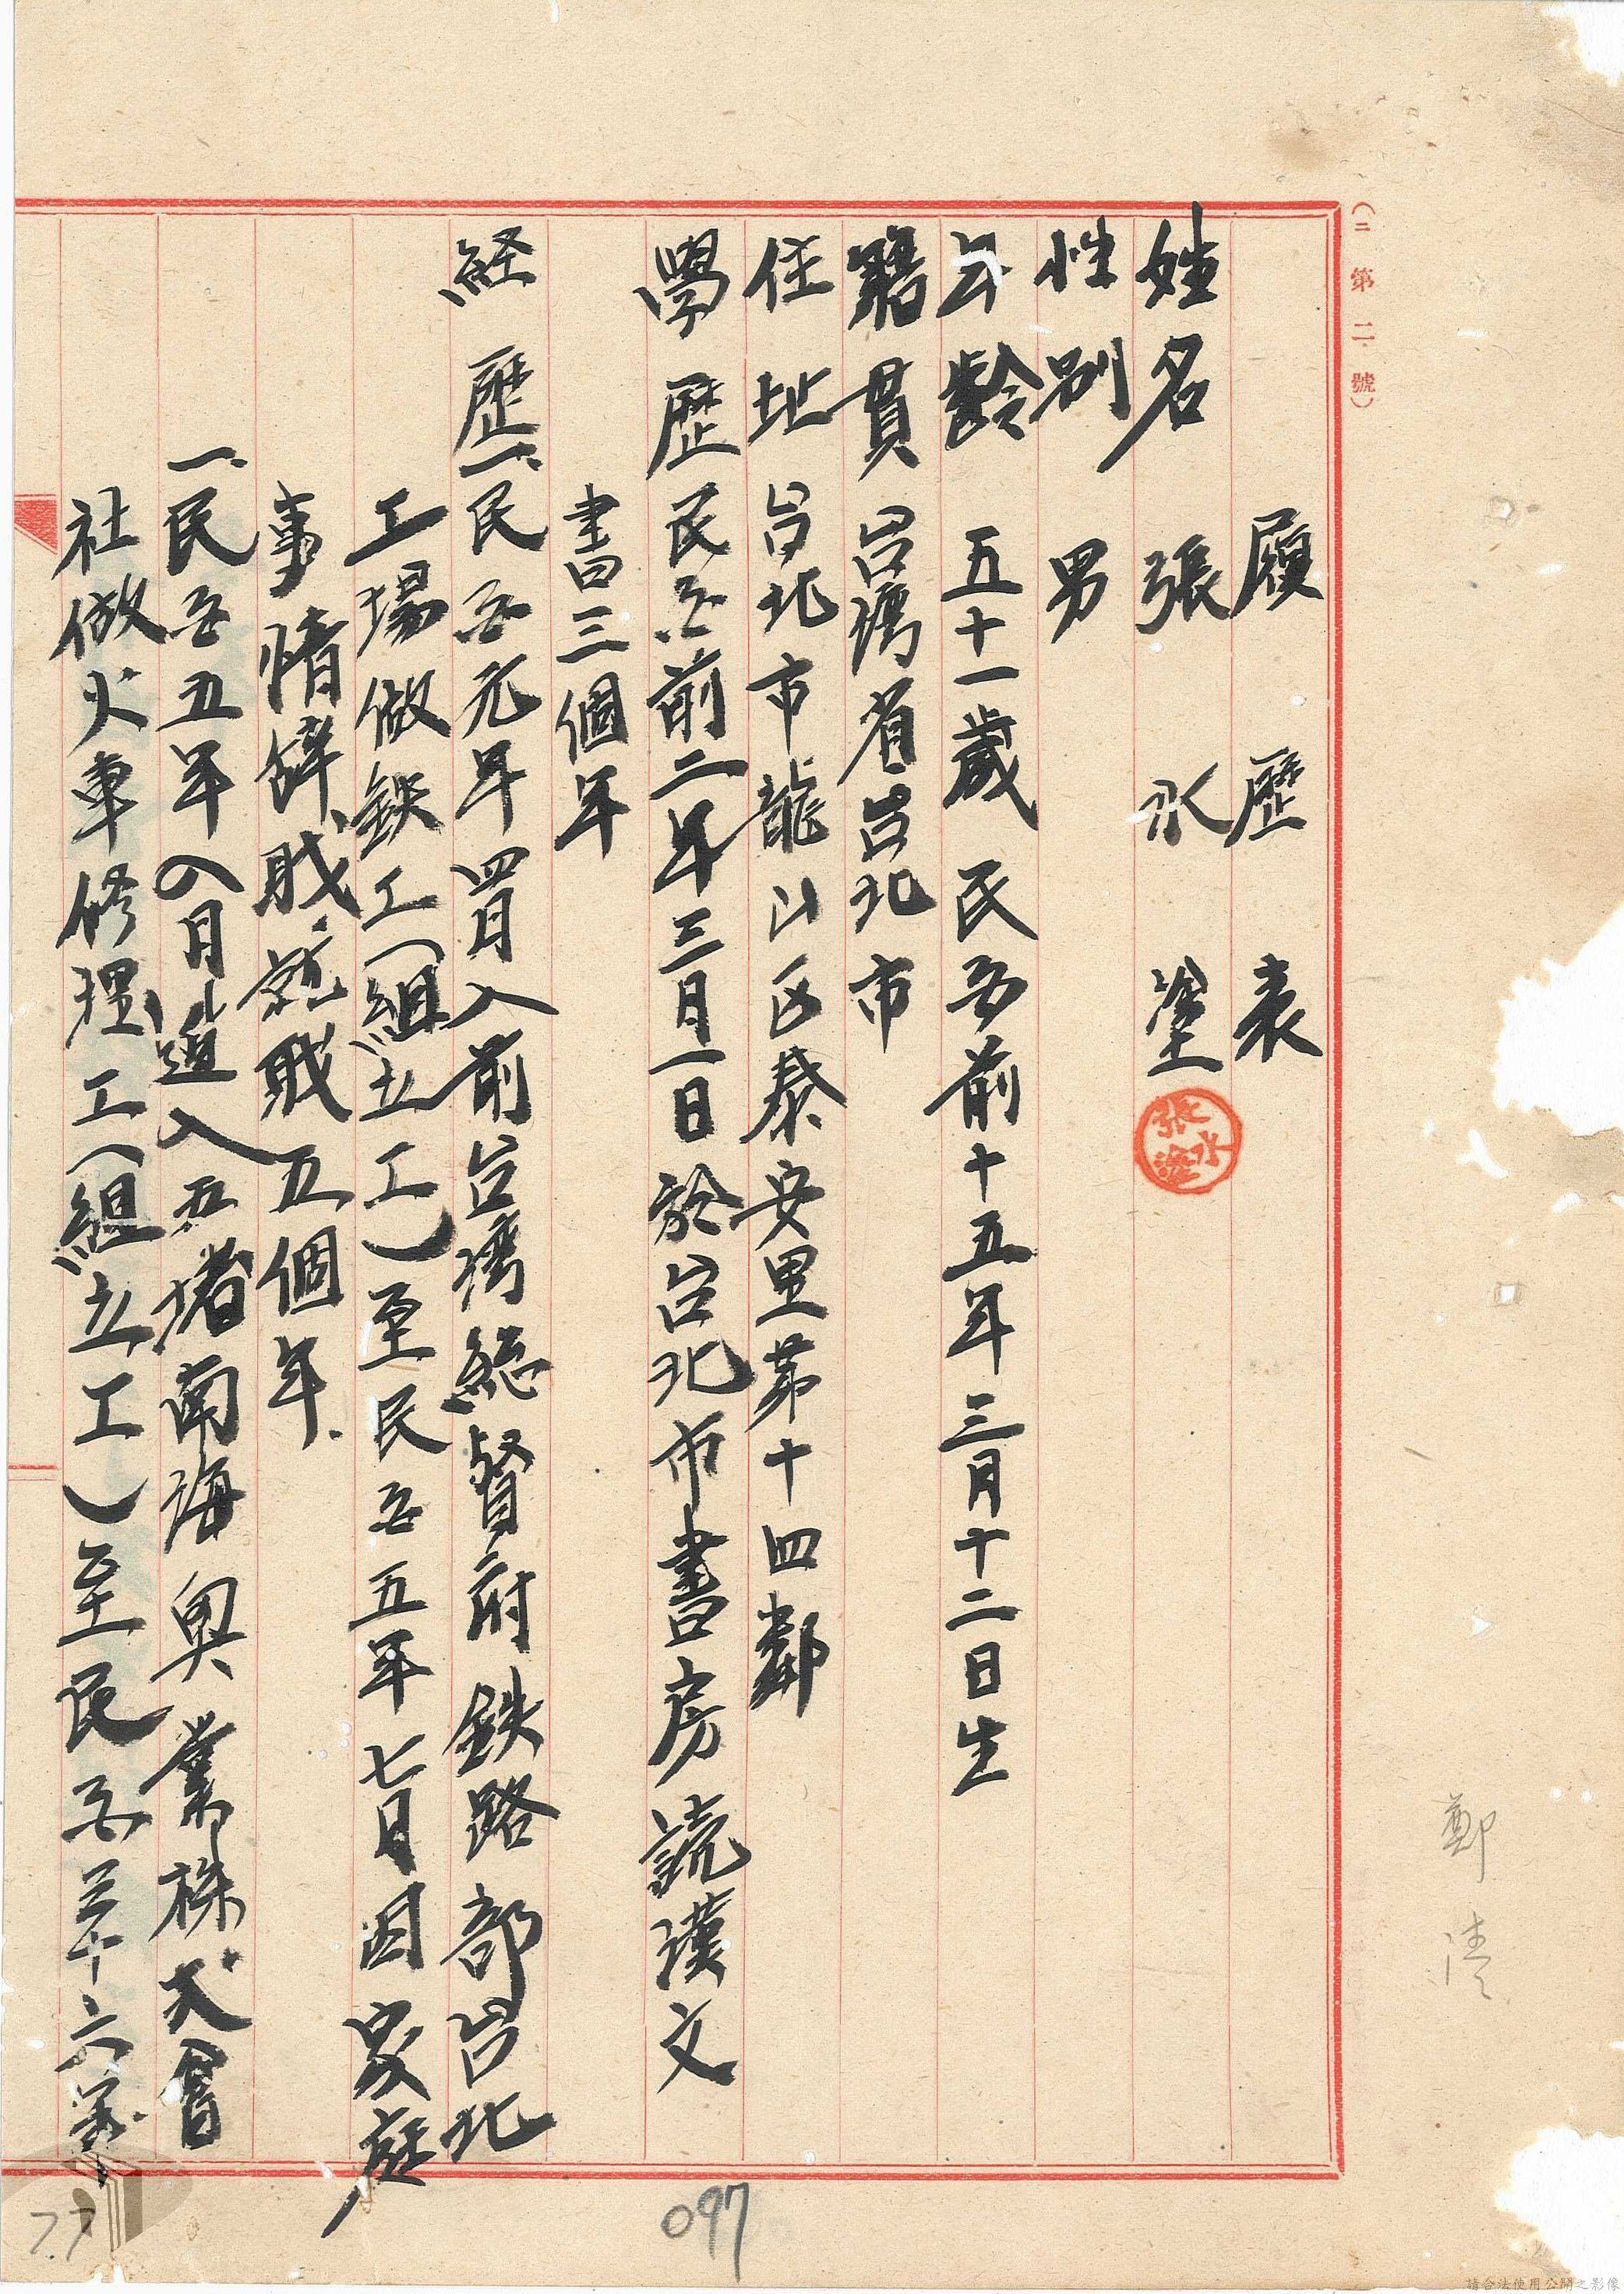 (二第二號)
履歷表
姓名 張水塗
張水塗
性別 男
年齡 五十一歲 民國前十五年三月十二日生
籍貫 台湾省台北市
住址 台北市龍山区泰安里第十四鄰
學歷 民国前二年三月一日於台北市書房読漢文
書三個年
経歷 一、民国元年四月入前台湾総督府鉄路部台北
工場做鉄工(組立工)至民国五年七月因家庭
事情辞職、就職五個年.
一、民国五年八月進入五堵南海興業株式會
社做火車修理工(組立工)至民国三十六年
鄭清
097
77
請合法使用公開之影像